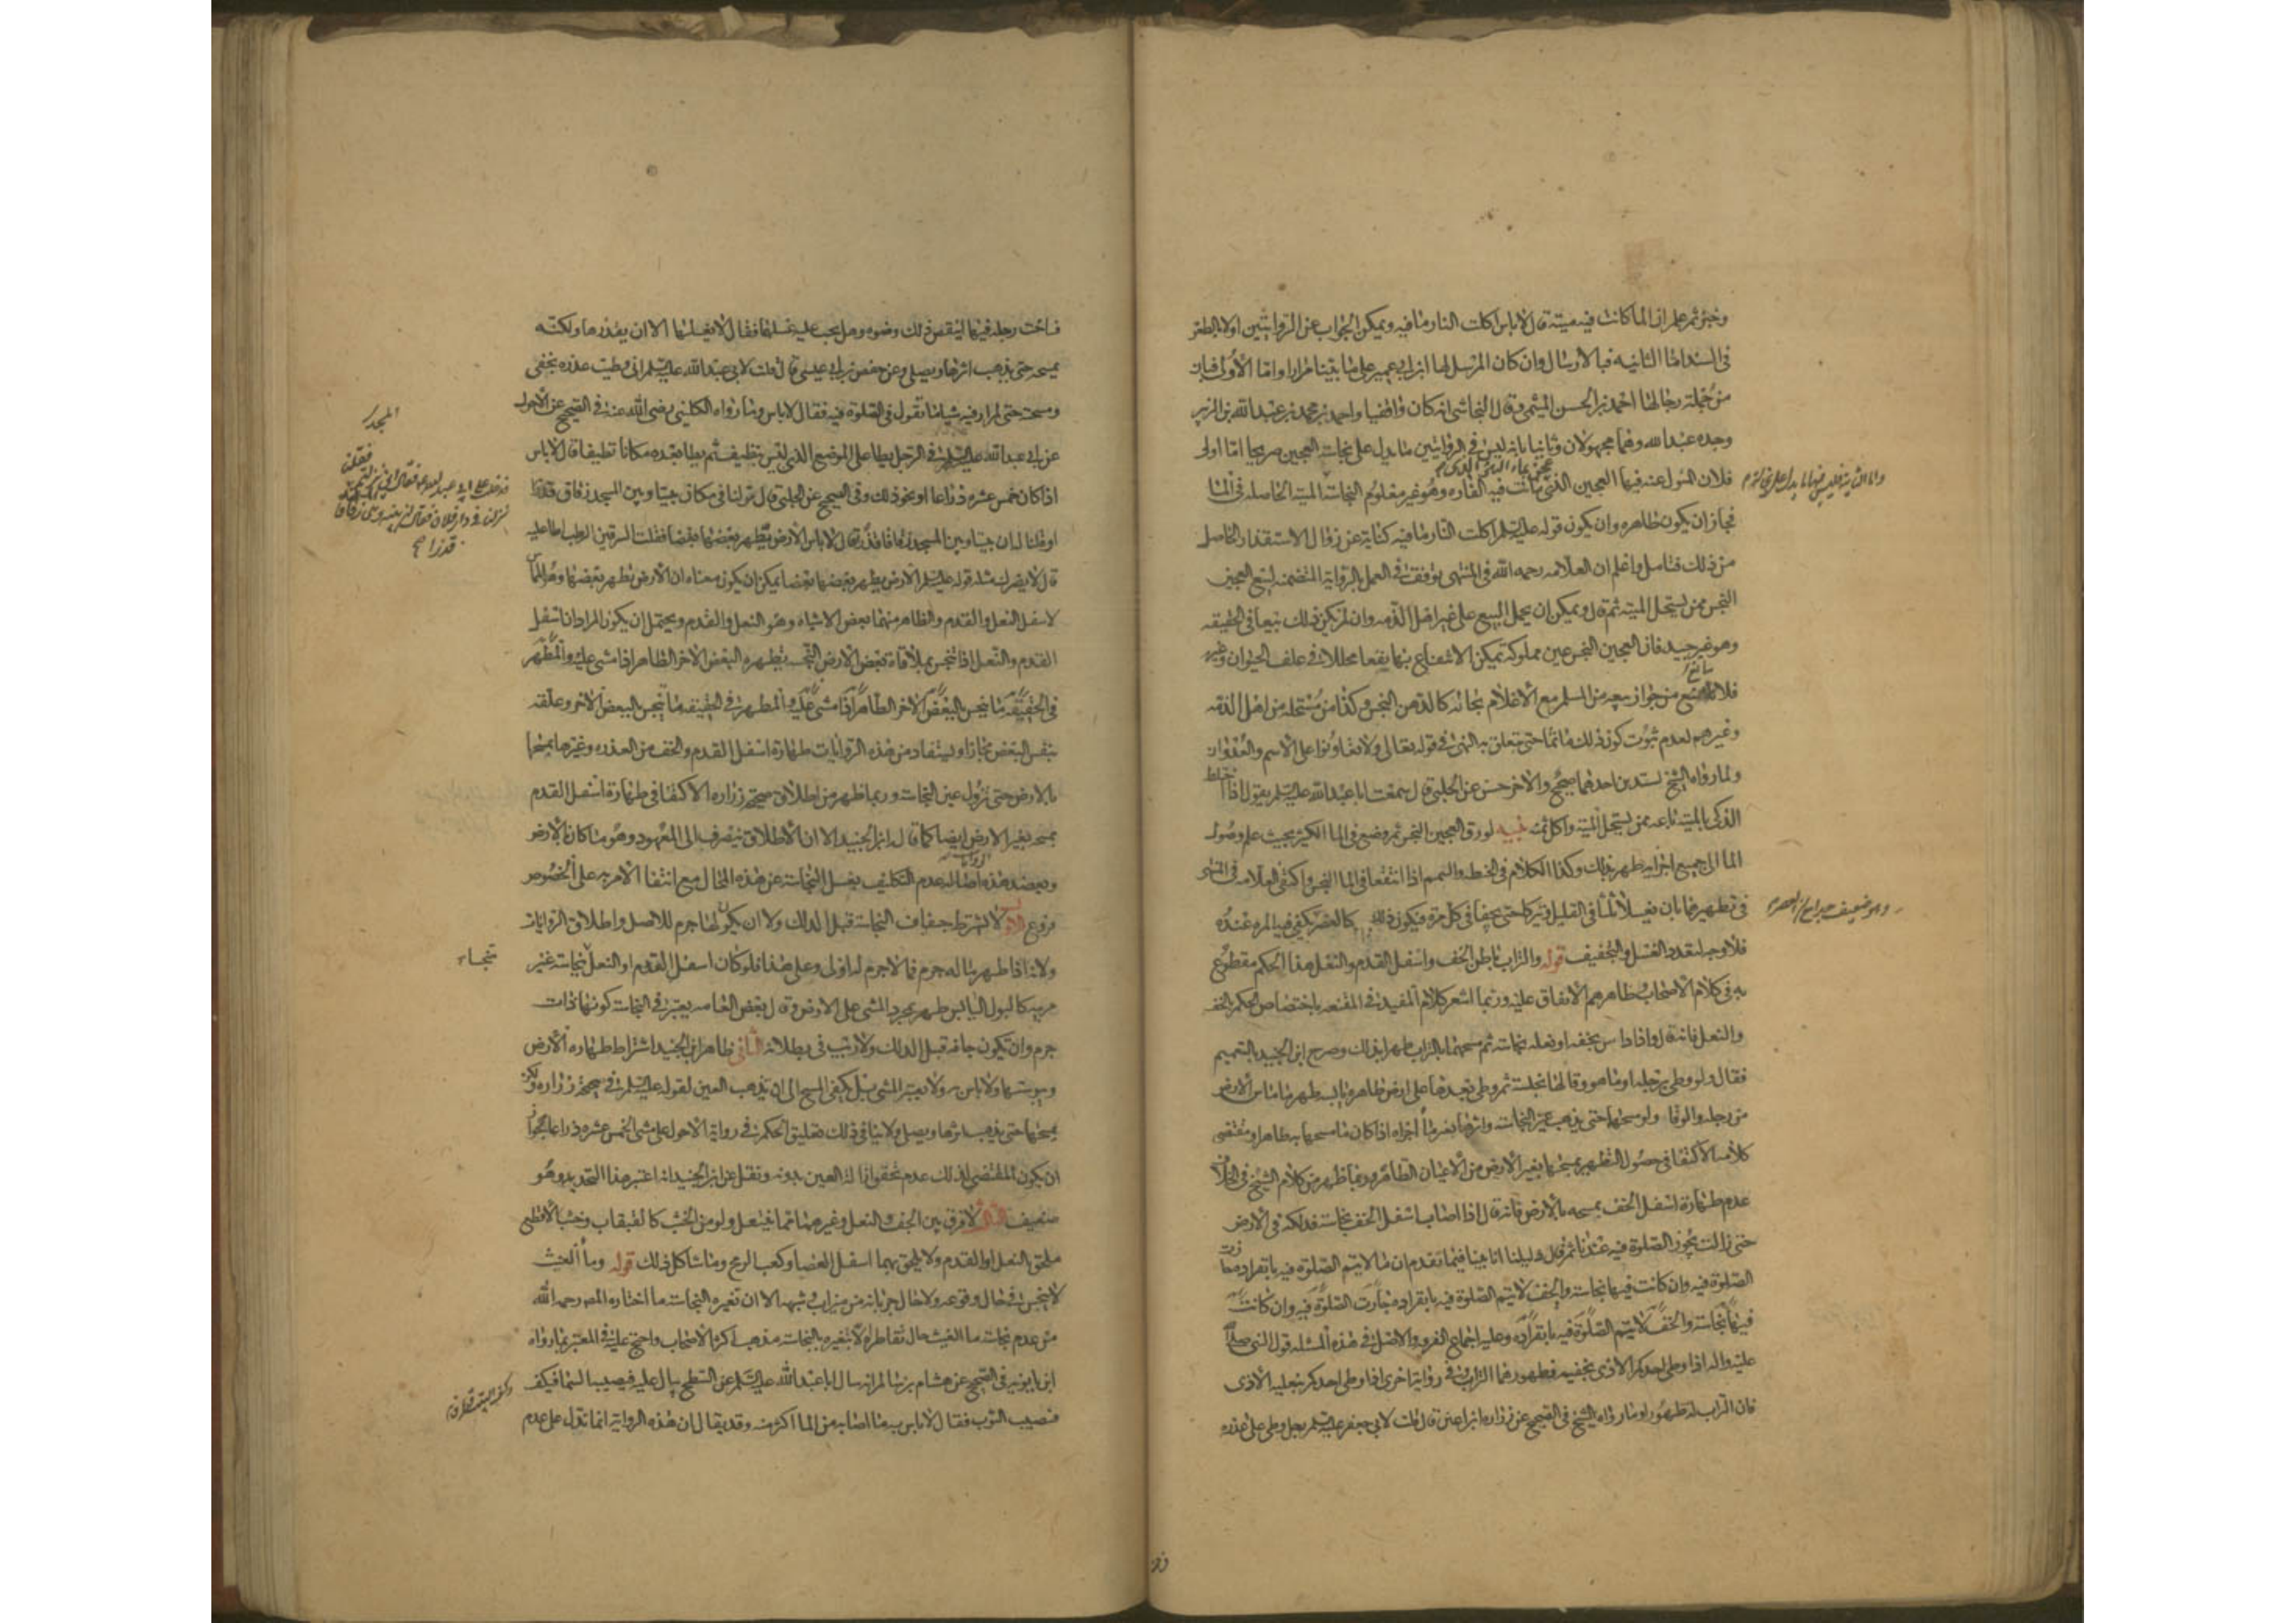 وخبز ثم علم ان الماء كانت فيه ميتة قال لا باس اكلت النار ما فيه ويمكن الجواب عن الروايتين اولا بالطعن
في السند اما الثانيه فبالارسال وان كان المرسل لها ابن ابي عمير على ما بيناه مرارا واما الأولى فبان
من جملة رجالها احمد بن الحسن الميثمي وقال النجاشي انه كان واقفيا واحمد بن محمد بن عبد الله بن الزبير
وجده عبد الله وهما مجهولان وثانيا بانه ليس في الروايتين ما يدل على نجاسة العجين صريحا اما اولى
فلان المسول عنه فيها العجين الذي ماتت فيه الفاره وهو غير معلوم النجاسة الميتة الحاصله في الماء
عجن بماء البئر الذي
فجاز ان يكون طاهره وان يكون قوله عليه السلم اكلت النار ما فيه كناية عن زوال الاستقذار الحاصل
من ذلك فتامل واعلم ان العلامه رحمه الله في المنتهى توقف في العمل بالرواية المتضمنه لبيع العجين
النجس ممن يستحل الميته ثم قال ويمكن ان يحمل البيع على غير اهل الذمه وان لم يكن ذلك بيعا في الحقيقه
وهو غير جيد فان العجين النجس عين مملوكه يمكن الانتفاع بها نفعا محللا في علف الحيوان وغيره
فلا مانع من جواز بيعه من المسلم مع الاعلام بحاله كالدهن النجس وكذا من مستحله من اهل الذمه
وغيرهم لعدم ثبوت كون ذلك ماثما حتى يتعلق به النهي في قوله تعالى ولا تعاونوا على الاثم والعدوان
ولما رواه الشيخ بسندين احدهما صحيح والاخر حسن عن الحلبي قال سمعت ابا عبد الله عليه السلم يقول اذا اختلط
الذكي بالميته باعه ممن يستحل الميته واكل ثمنه تنبيه لو رق العجين النجس ثم وضع في الماء الكثير بحيث علم وصول
الماء الى جميع اجزايه طهر بذلك وكذا الكلام في الحنطه والسمسم اذا انتفعا في الماء النجس واكتفى العلامه في المنتهى
في تطهيرهما بان يغسلا ثلثا في القليل او يتركا حتى يجفا في كل مرة فيكون ذلك كالعصر يكفي فيه المره عنده
فلا وجه لتعدد الغسل والتجفيف قوله والتراب باطن الخف واسفل القدم والنعل هذا الحكم مقطوع
به في كلام الاصحاب وظاهرهم الاتفاق عليه وربما اشعر كلام المفيد في المقنعه باختصاص الحكم بالخف
والنعل فانه قال واذا داس بخفه او نعله نجاسة ثم مسحهما بالتراب طهرا بذلك وصرح ابن الجنيد بالتعميم
فقال ولو وطى برجله او ما هو وقا لها نجاسة ثم وطى بعدها على ارض طاهره يابسه طهر ما ماس الارض
من رجله والوقا ولو مسحها حتى يذهب عين النجاسة واثرها بغير ماء اجزاه اذا كان ما مسحها به طاهرا ومقتضى
كلامه الاكتفا في حصول التطهير بمسحها بغير الارض من الاعيان الطاهره وربما ظهر من كلام الشيخ في الخلاف
عدم طهارة اسفل الخف بمسحه بالارض فانه قال اذا اصاب اسفل الخف نجاسة فدلكه في الارض
حتى زالت تجوز الصلوة فيه عندنا ثم قال دليلنا انا بينا فيما تقدم ان ما لا يتم الصلوة فيه بانفراده جازت
الصلوة فيه وان كانت فيها نجاسة والخف لا يتم الصلوة فيه بانفراده مجازت الصلوة فيه وان كانت
فيها نجاسة والخف لا يتم الصلوة فيه بانفراده وعليه اجماع الفرقه والاصل في هذه المسئله قول النبي صلى الله
عليه واله اذا وطى احدكم الاذى بخفيه فطهورهما التراب وفي رواية اخرى اذا وطى احدكم بنعليه الاذى
فان التراب له طهور وما رواه الشيخ في الصحيح عن زراره ابن اعين قال قلت لابي جعفر عليه السلم رجل وطى على عذره
فساخت رجله فيها اينقض ذلك وضوه وهل يجب عليه غسلها فقال لا يغسلها الا ان يقذرها ولكنه
يمسحها حتى يذهب اثرها ويصلي وعن حفص بن ابي عيسى قال قلت لابي عبد الله عليه السلم اني وطيت عذره بخفي
ومسحته حتى لم ار فيه شيئا ما تقول في الصلوة فيه فقال لا باس وما رواه الكليني رضي الله عنه في الصحيح عن الاحول
عن ابي عبد الله عليه السلم في الرجل يطا على الموضع الذي ليس بنظيف ثم يطا بعده مكانا نظيفا قال لا باس
اذا كان خمس عشره ذراعا او نحو ذلك وفي الصحيح عن الحلبي قال نزلنا في مكان بيننا وبين المسجد زقاق قذر
او قلنا له ان بيننا وبين المسجد زقاقا قذرا قال لا باس الارض يطهر بعضها بعضا فقلت السرقين الرطب اطا عليه
قال لا يضرك مثله قوله عليه السلم الارض يطهر بعضها بعضا يمكن ان يكون معناه ان الارض يطهر بعضها وهو المماس
لاسفل النعل والقدم والظاهر منهما بعض الاشياه وهو النعل والقدم ويحتمل ان يكون المراد ان اسفل
القدم والنعل اذا تنجس بملاقاة بعض الارض النجسه يطهره البعض الاخر الطاهر اذا مشى عليه والمطهر
في الحقيقه ما ينجس البعض الاخر الطاهر اذا مشى عليه والمطهر في الحقيقه ما ينجس بالبعض الاخر وعلقه
بنفس البعض مجازا ويستفاد من هذه الروايات طهارة اسفل القدم والخف من العذره وغيرها بمسحها
بالارض حتى تزول عين النجاسة وربما ظهر من اطلاق صحيحة زراره الاكتفا في طهارة اسفل القدم
بمسحه بغير الارض ايضا كما قال ابن الجنيد الا ان الاطلاق ينصرف الى المعهود وهو ما كان بالارض
ويعضد هذه الروايات اصالة عدم التكليف بغسل النجاسة عن هذه المحال مع انتفا الامر به على الخصوص
فروع الاول لا يشترط جفاف النجاسة قبل الدلك ولا ان يكون لها جرم للاصل واطلاق الروايات
ولانه اذا طهر ما له جرم فما لا جرم له اولى وعلى هذا فلو كان اسفل القدم او النعل نجاسة غير
مريه كالبول اليابس طهر بمجرد المشي على الارض وقال بعض العامه يعتبر في النجاسة كونها ذات
جرم وان تكون جافه قبل الدلك ولا ريب في بطلانه الثاني ظاهر ابن الجنيد اشتراط طهارة الارض
ويبوستها ولا باس به ولا يعتبر المشي بل يكفي المسح الى ان يذهب العين لقوله عليه السلم في صحيحة زراره ولكنه
يمسحها حتى يذهب اثرها ويصلي ولا ينافي ذلك تعليق الحكم في رواية الاحول على مشي الخمس عشره ذراعا لجواز
ان يكون المقتضي لذلك عدم تحقق ازالة العين بدونه ونقل عن ابن الجنيد انه اعتبر هذا التحديد وهو
ضعيف الثالث لا فرق بين الخف والنعل وغيرهما مما ينتعل ولو من الخشب كالقبقاب وخشبة الاقطع
ملحق النعل او القدم ولا يلحق بهما اسفل العصا وكعب الرمح وما شاكل ذلك قوله وماء الغيث
لا ينجس في حال وقوعه ولا حال جريانه من ميزاب وشبهه الا ان تغيره النجاسة ما اختاره المصه رحمه الله
من عدم نجاسة ماء الغيث حال تقاطره الا بتغيره بالنجاسة مذهب اكثر الاصحاب واحتج عليه في المعتبر بما رواه
ابن بابويه في الصحيح عن هشام بن سالم انه سال ابا عبد الله عليه السلم عن السطح يبال عليه فيصيبه السماء فيكف
فيصيب الثوب فقال لا باس به ما اصابه من الماء اكثر منه وقد يقال ان هذه الرواية انما تدل على عدم